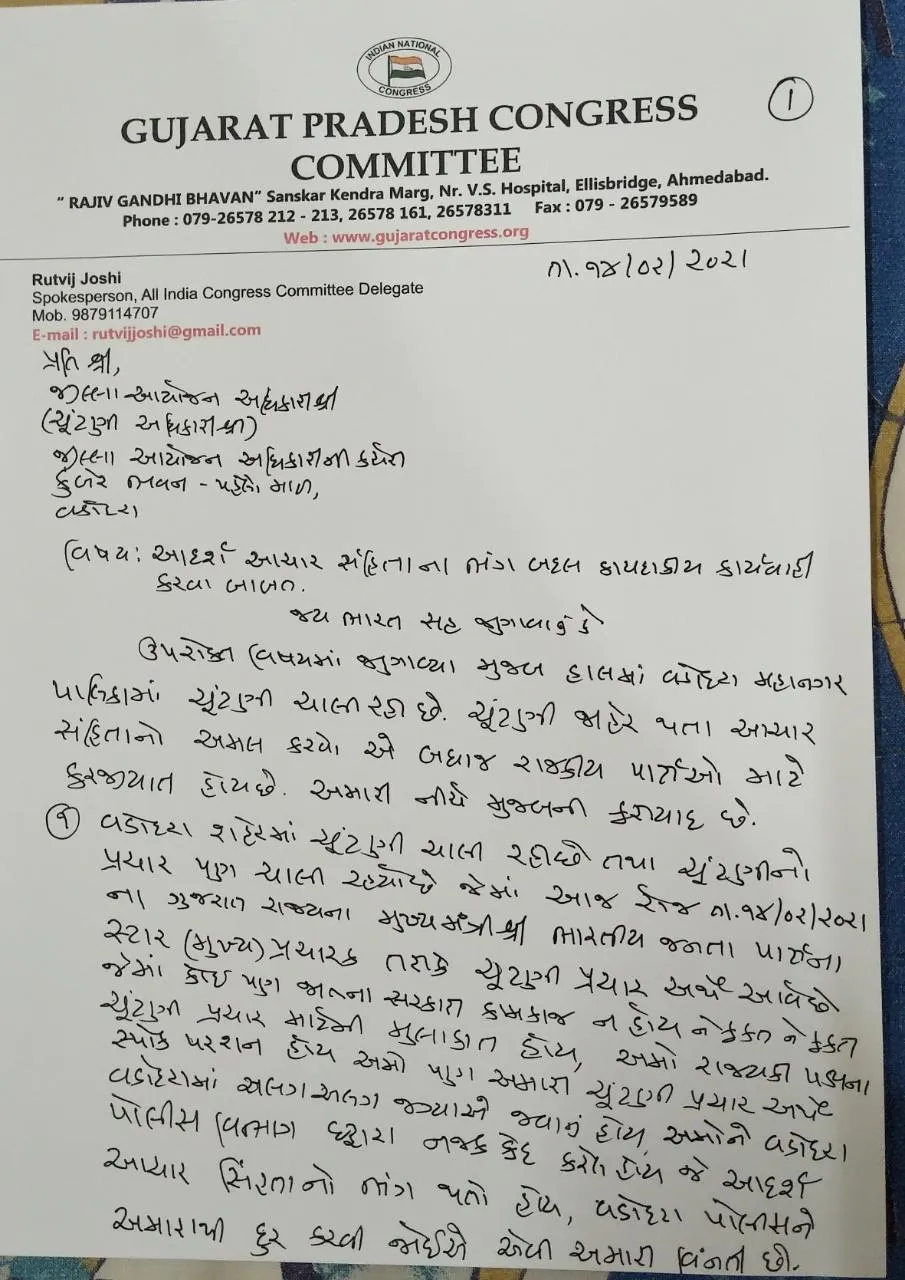 INDIAN NATIONAL
CONGRESS
1
GUJARAT PRADESH CONGRESS
COMMITTEE
“ RAJIV GANDHI BHAVAN” Sanskar Kendra Marg, Nr. V.S. Hospital, Ellisbridge, Ahmedabad.
Phone : 079-26578 212 - 213, 26578 161, 26578311 Fax : 079 - 26579589
Web : www.gujaratcongress.org
તા.૧૪/૦૨/૨૦૨૧
Rutvij Joshi
Spokesperson, All India Congress Committee Delegate
Mob. 9879114707
E-mail : rutvijjoshi@gmail.com
પ્રતિ શ્રી,
જીલ્લા આયોજન અધિકારીશ્રી
(ચૂંટણી અધિકારીશ્રી)
જીલ્લા આયોજન અધિકારીની કચેરી
કુબેર ભવન - પહેલો માળ,
વડોદરા
વિષય: આદર્શ આચાર સંહિતાના ભંગ બદલ કાયદાકીય કાર્યવાહી
કરવા બાબત.
જય ભારત સહ જણાવાનું કે
ઉપરોક્ત વિષયમાં જણાવ્યા મુજબ હાલમાં વડોદરા મહાનગર
પાલિકામાં ચૂંટણી ચાલી રહી છે. ચૂંટણી જાહેર થતા આચાર
સંહિતાનો અમલ કરવો એ બધાજ રાજકીય પાર્ટીઓ માટે
ફરજીયાત હોય છે. અમારી નીચે મુજબની ફરીયાદ છે.
૧ વડોદરા શહેરમાં ચૂંટણી ચાલી રહી છે તથા ચૂંટણીનો
પ્રચાર પણ ચાલી રહ્યો છે જેમાં આજ રોજ તા.૧૪/૦૨/૨૦૨૧
ના ગુજરાત રાજ્યના મુખ્યમંત્રીશ્રી ભારતીય જનતા પાર્ટીના
સ્ટાર (મુખ્ય) પ્રચારક તરીકે ચૂંટણી પ્રચાર અર્થે આવે છે
જેમાં કોઇ પણ જાતના સરકારી કામકાજ ન હોય ને ફક્ત ને ફક્ત
ચૂંટણી પ્રચાર માટેની મુલાકાત હોય, અમો રાજ્યકી પક્ષના
સ્પોક પરશન હોય અમો પણ અમારા ચૂંટણી પ્રચાર અર્થે
વડોદરામાં અલગ અલગ જગ્યાએ જવાનું હોય, અમોને વડોદરા
પોલીસ વિભાગ દ્વારા નજર કેદ કરેલ હોય જે આદર્શ
આચાર સિંહતાનો ભંગ થતો હોય, વડોદરા પોલીસને
અમારાથી દુર કરવી જોઈએ એવી અમારી વિનંતી છે.